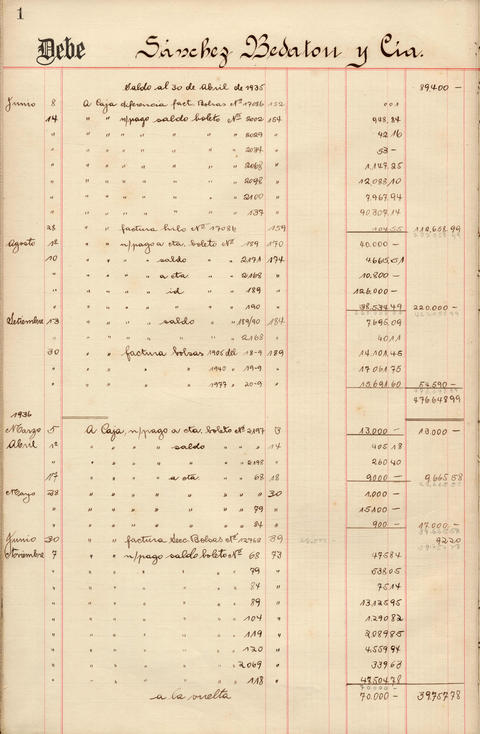 1
Debe Sánchez Bedatou y Cía.
Saldo al 30 de Abril de 1935 89400 —
Junio 8 A Caja diferencia fact. Bolsas Nº 17086 152
14 " " n/pago saldo boleto Nº 2002 154 948,84
" " " " " " 2029 " 42 16
" " " " " " 2034 " 53 —
" " " " " " 2068 " 1.147,25
" " " " " " 2098 " 12.083,10
" " " " " " 2100 " 7.967,94
" " " " " " 137 " 90.307,14
23 " " factura hilo Nº 17086 159
Agosto 1º " " n/pago a cta. boleto Nº 189 170 40.000 —
10 " " " " saldo " " 2171 174
" " " " a cta " " 2168 " 10.800 —
" " " " id " " 189 " 126.000 —
" " " " " " " 190 " 38.534,49 220.000 —
Setiembre 13 " " " " saldo " " 189/90 184 7695,09
" " " " " " " 2168 " 40 11
30 " " factura bolsas 1905 del 18-9 189 14.101,45
" " " " 1940 " 19-9 " 17.061,75
" " " " 1977 " 20-9 " 15.691,60 54.590 —
476648,99
1936
Marzo 5 A Caja n/pago a cta. boleto Nº 2197 3 13.000 — 13.000 —
Abril 1º " " " " saldo " " " 14 405,18
" " " " " " " 2198 " 260,40
17 " " " " a cta " " 68 18 9000 — 9665,58
Mayo 28 " " " " " " " " 30 1.000 —
" " " " " " " 79 " 15.100 —
" " " " " " " 84 " 900 — 17.000 —
Junio 30 " " factura Sec. Bolsas Nº 12768 39 92,20
Noviembre 7 " " n/pago saldo boleto Nº 68 73 475,84
" " " " " " 79 " 538,05
" " " " " " 84 " 75,14
" " " " " " 89 " 13.125,95
" " " " " " 104 " 1.290,82
" " " " " " 119 " 2.089,85
" " " " " " 120 " 4.559,94
" " " " " " 2.069 " 339,63
" " " " " " 118 " 47.504,78
a la vuelta 70.000 — 39757,78